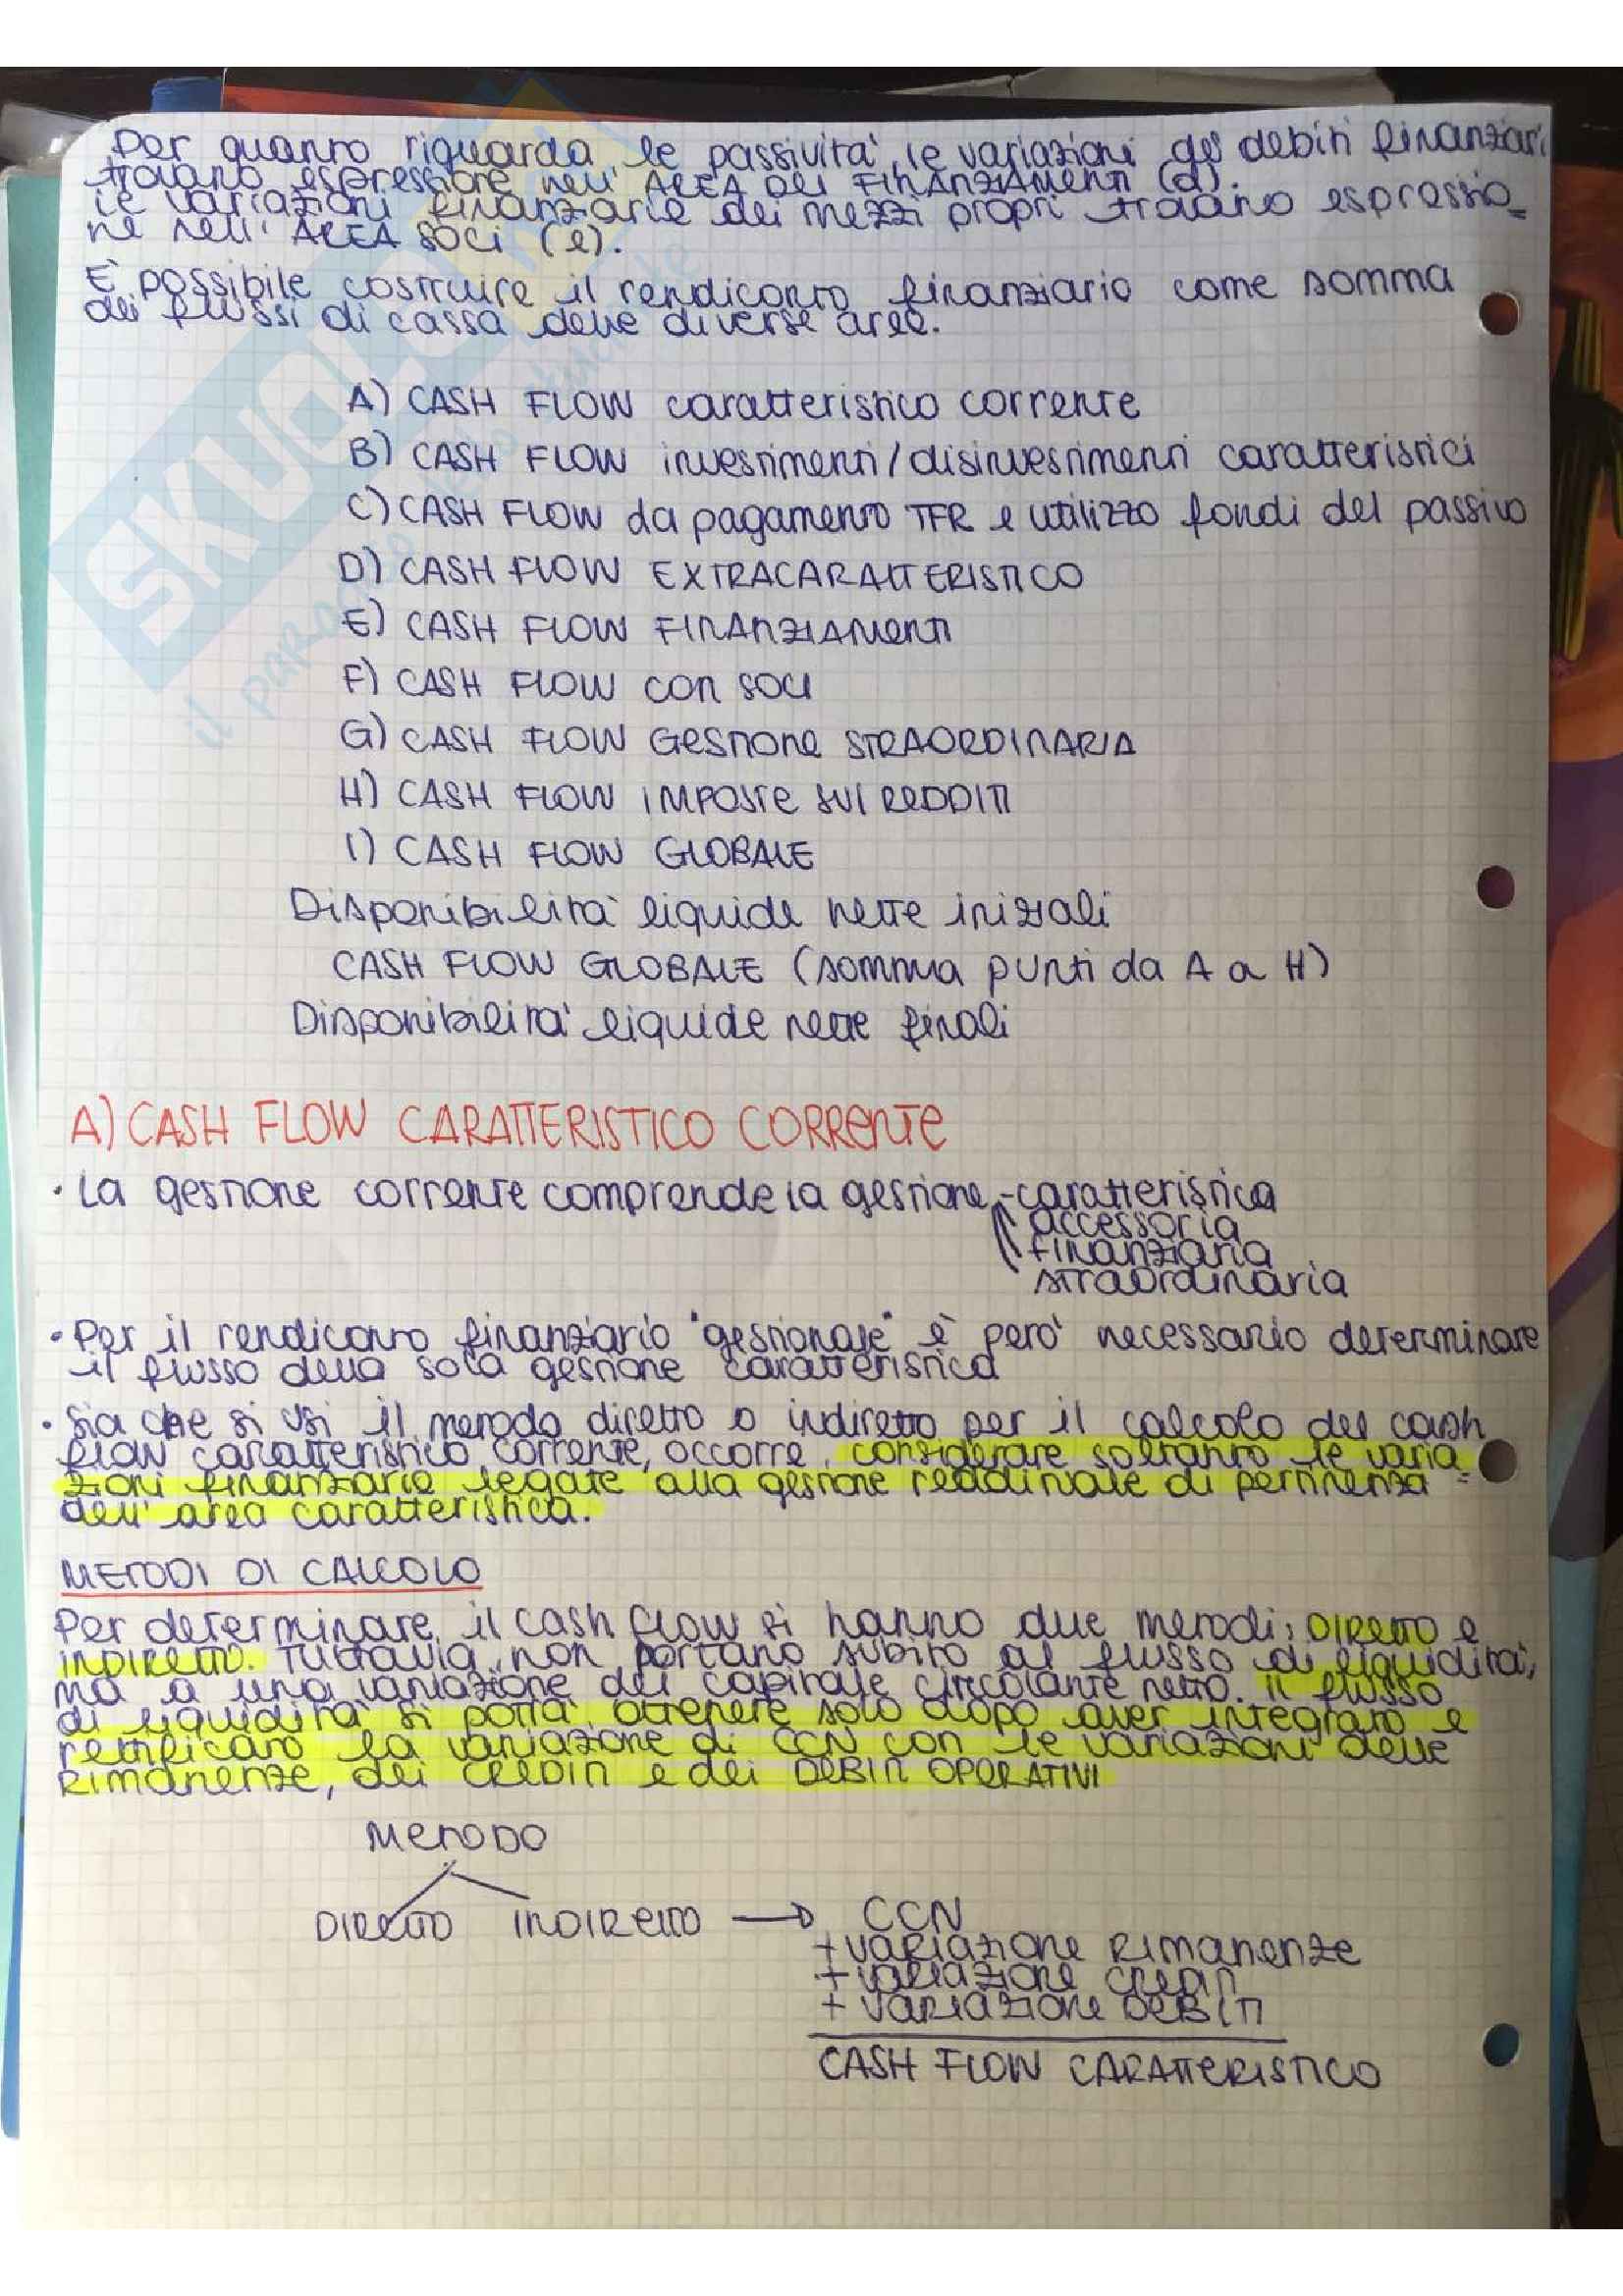 Per quanto riguarda le passività, le variazioni dei debiti finanziari
trovano espressione nell'AREA DEI FINANZIAMENTI (d).
Le variazioni finanziarie dei mezzi propri trovano espressio=
ne nell'AREA SOCI (e).
È possibile costruire il rendiconto finanziario come somma
dei flussi di cassa delle diverse aree.
A) CASH FLOW caratteristico corrente
B) CASH FLOW investimenti/disinvestimenti caratteristici
C) CASH FLOW da pagamento TFR e utilizzo fondi del passivo
D) CASH FLOW EXTRACARATTERISTICO
E) CASH FLOW FINANZIAMENTI
F) CASH FLOW CON SOCI
G) CASH FLOW GESTIONE STRAORDINARIA
H) CASH FLOW IMPOSTE SUI REDDITI
I) CASH FLOW GLOBALE
Disponibilità liquide nette iniziali
CASH FLOW GLOBALE (somma punti da A a H)
Disponibilità liquide nette finali
A) CASH FLOW CARATTERISTICO CORRENTE
· La gestione corrente comprende la gestione - caratteristica
accessoria
finanziaria
straordinaria
· Per il rendiconto finanziario "gestionale" è però necessario determinare
il flusso della sola gestione caratteristica
· Sia che si usi il metodo diretto o indiretto per il calcolo del cash
flow caratteristico corrente, occorre considerare soltanto le varia
zioni finanziarie legate alla gestione reddituale di pertinenza =
dell'area caratteristica.
METODI DI CALCOLO
Per determinare il cash flow si hanno due metodi: DIRETTO e
INDIRETTO. Tuttavia, non portano subito al flusso di liquidità,
ma a una variazione del capitale circolante netto. Il flusso
di liquidità si potrà ottenere solo dopo aver integrato e
rettificato la variazione di CCN con le variazioni delle
RIMANENZE, dei CREDITI e dei DEBITI OPERATIVI
METODO
DIRETTO INDIRETTO → CCN
+ VARIAZIONE RIMANENZE
+ VARIAZIONE CREDITI
+ VARIAZIONE DEBITI
CASH FLOW CARATTERISTICO
SKUOLA.net
il paradiso dello studente